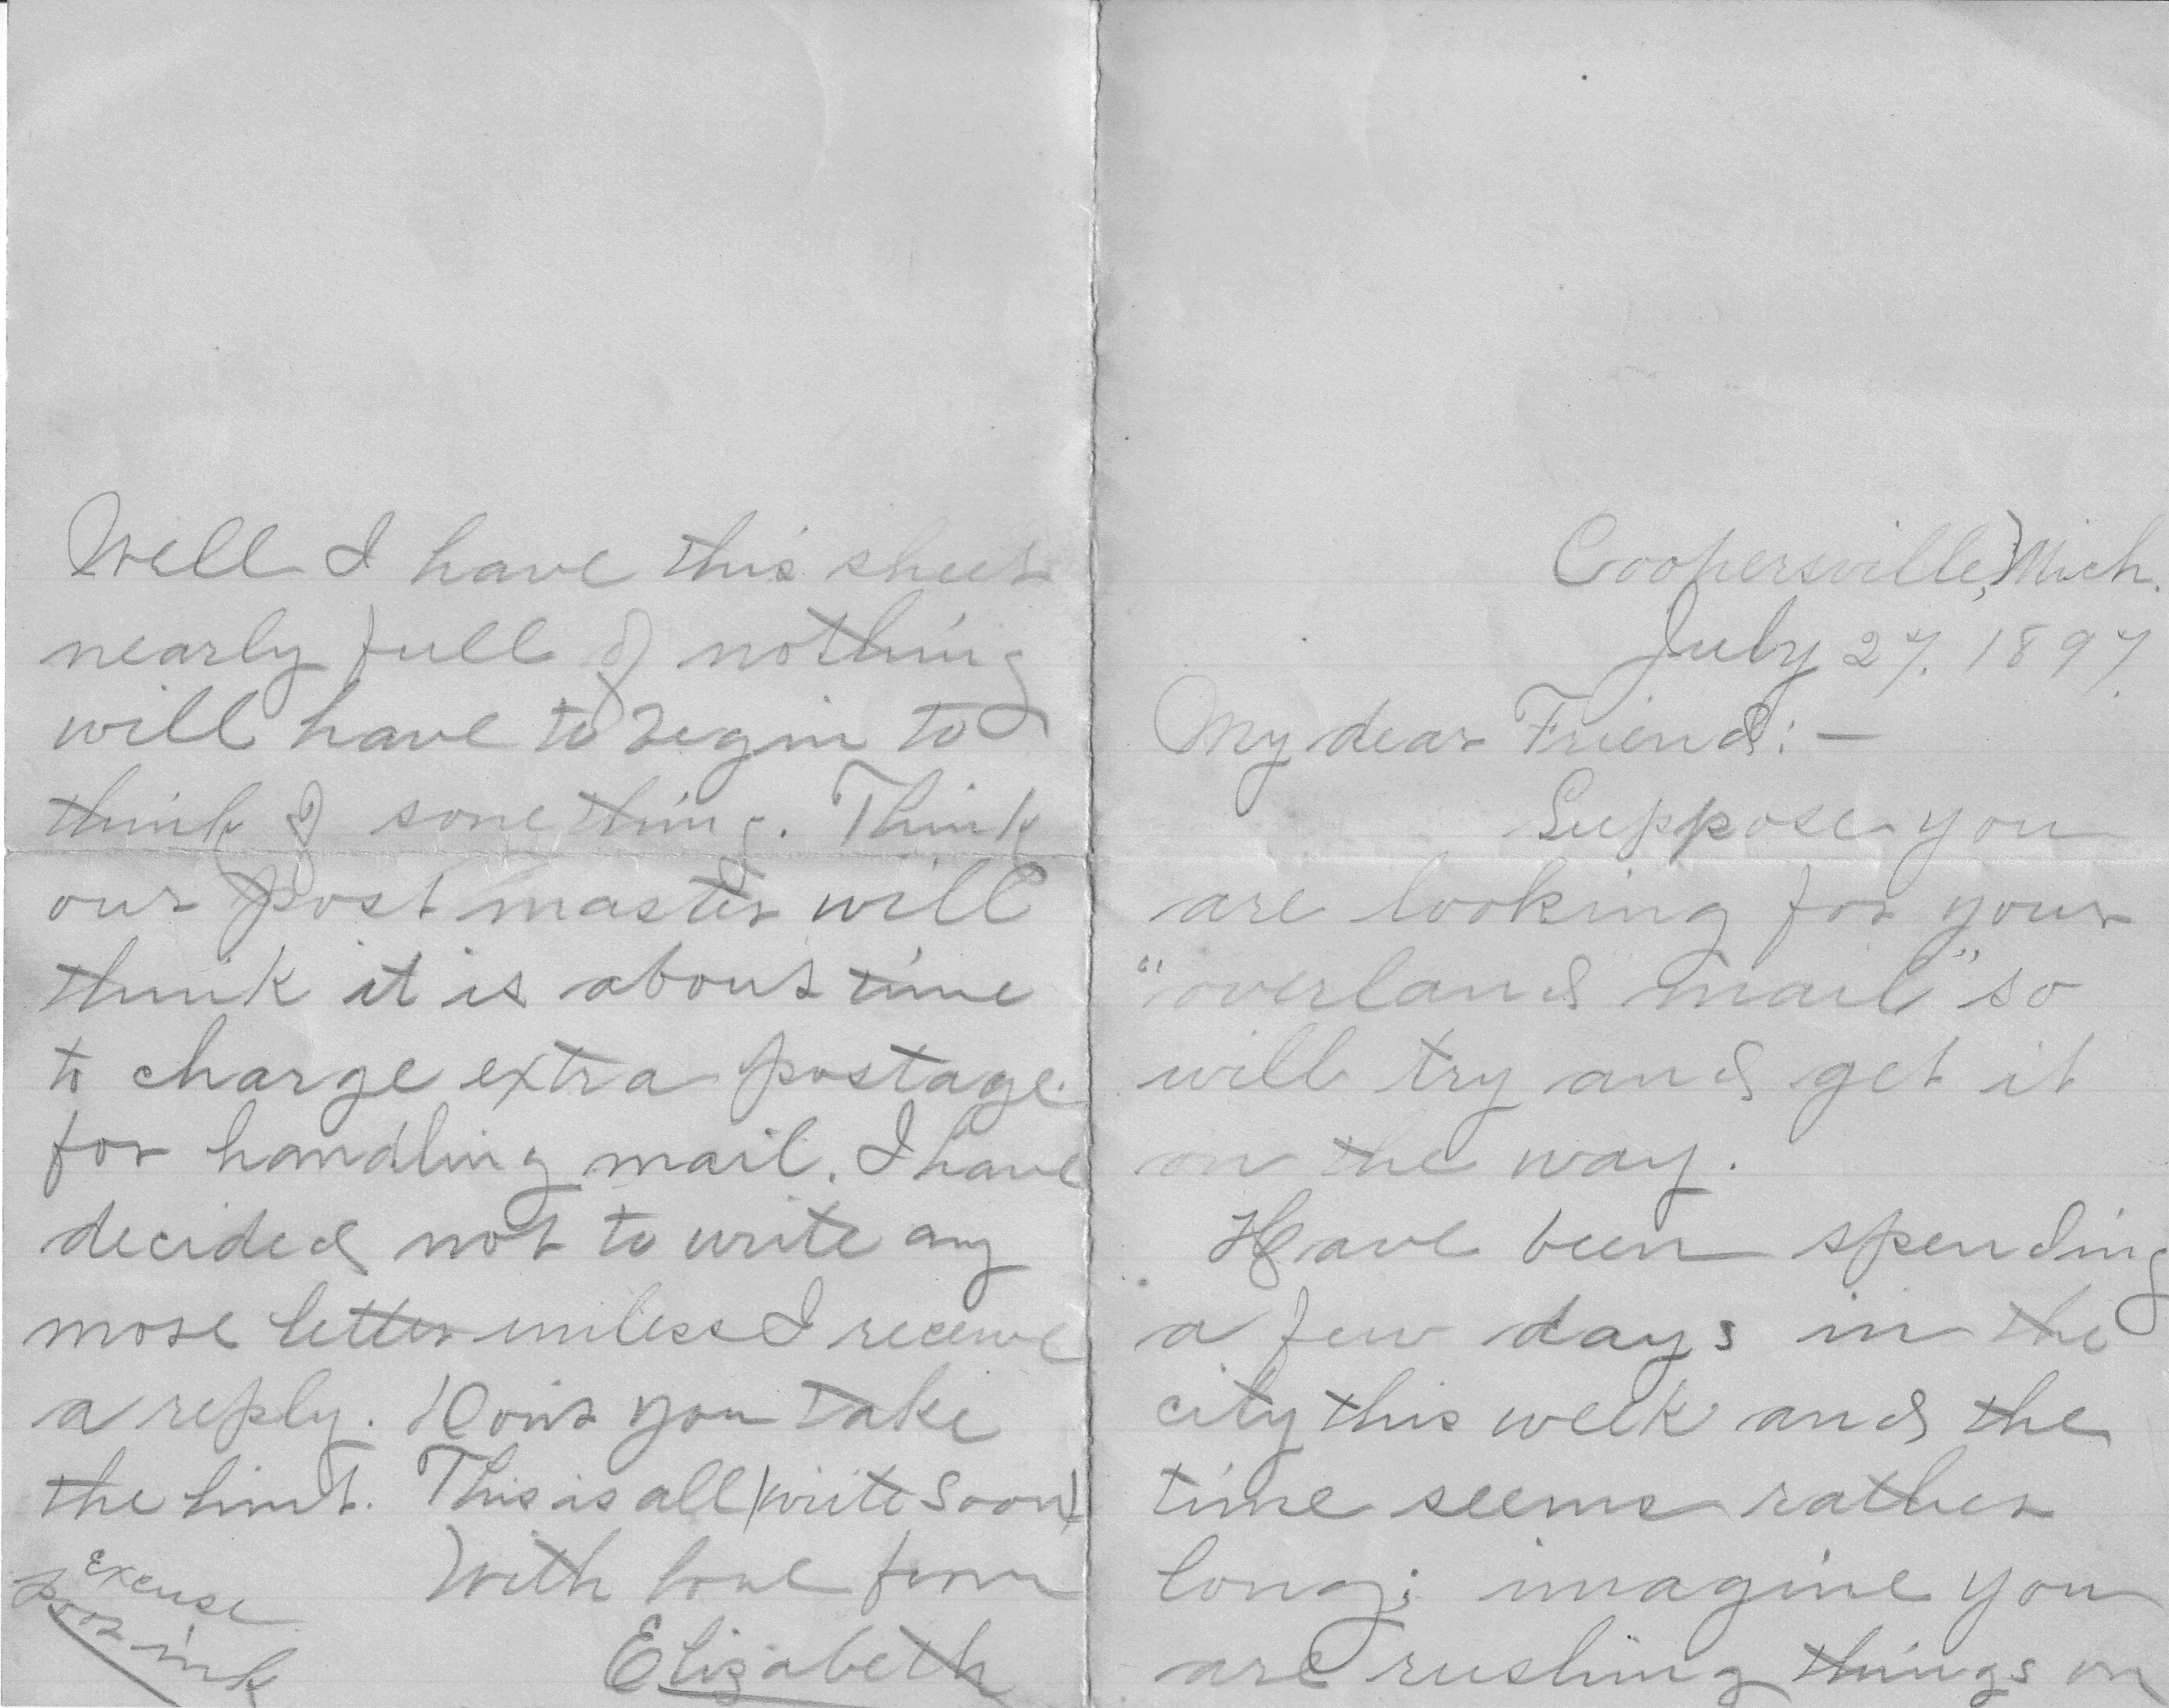 Coopersville, Mich.
July 27. 1897.
My dear Friend: —
Suppose you
are looking for your
"overland mail" so
will try and get it
on the way.
Have been spending
a few days in the
city this week and the
time seems rather
long; imagine you
are rushing things on
Well I have this sheet
nearly full of nothing
will have to begin to
think of something. Think
our post master will
think it is about time
to charge extra postage
for handling mail. I have
decided not to write any
more letter unless I receive
a reply. Don't you take
the hint. This is all (write soon)
With love from
Elizabeth
Excuse
poor ink